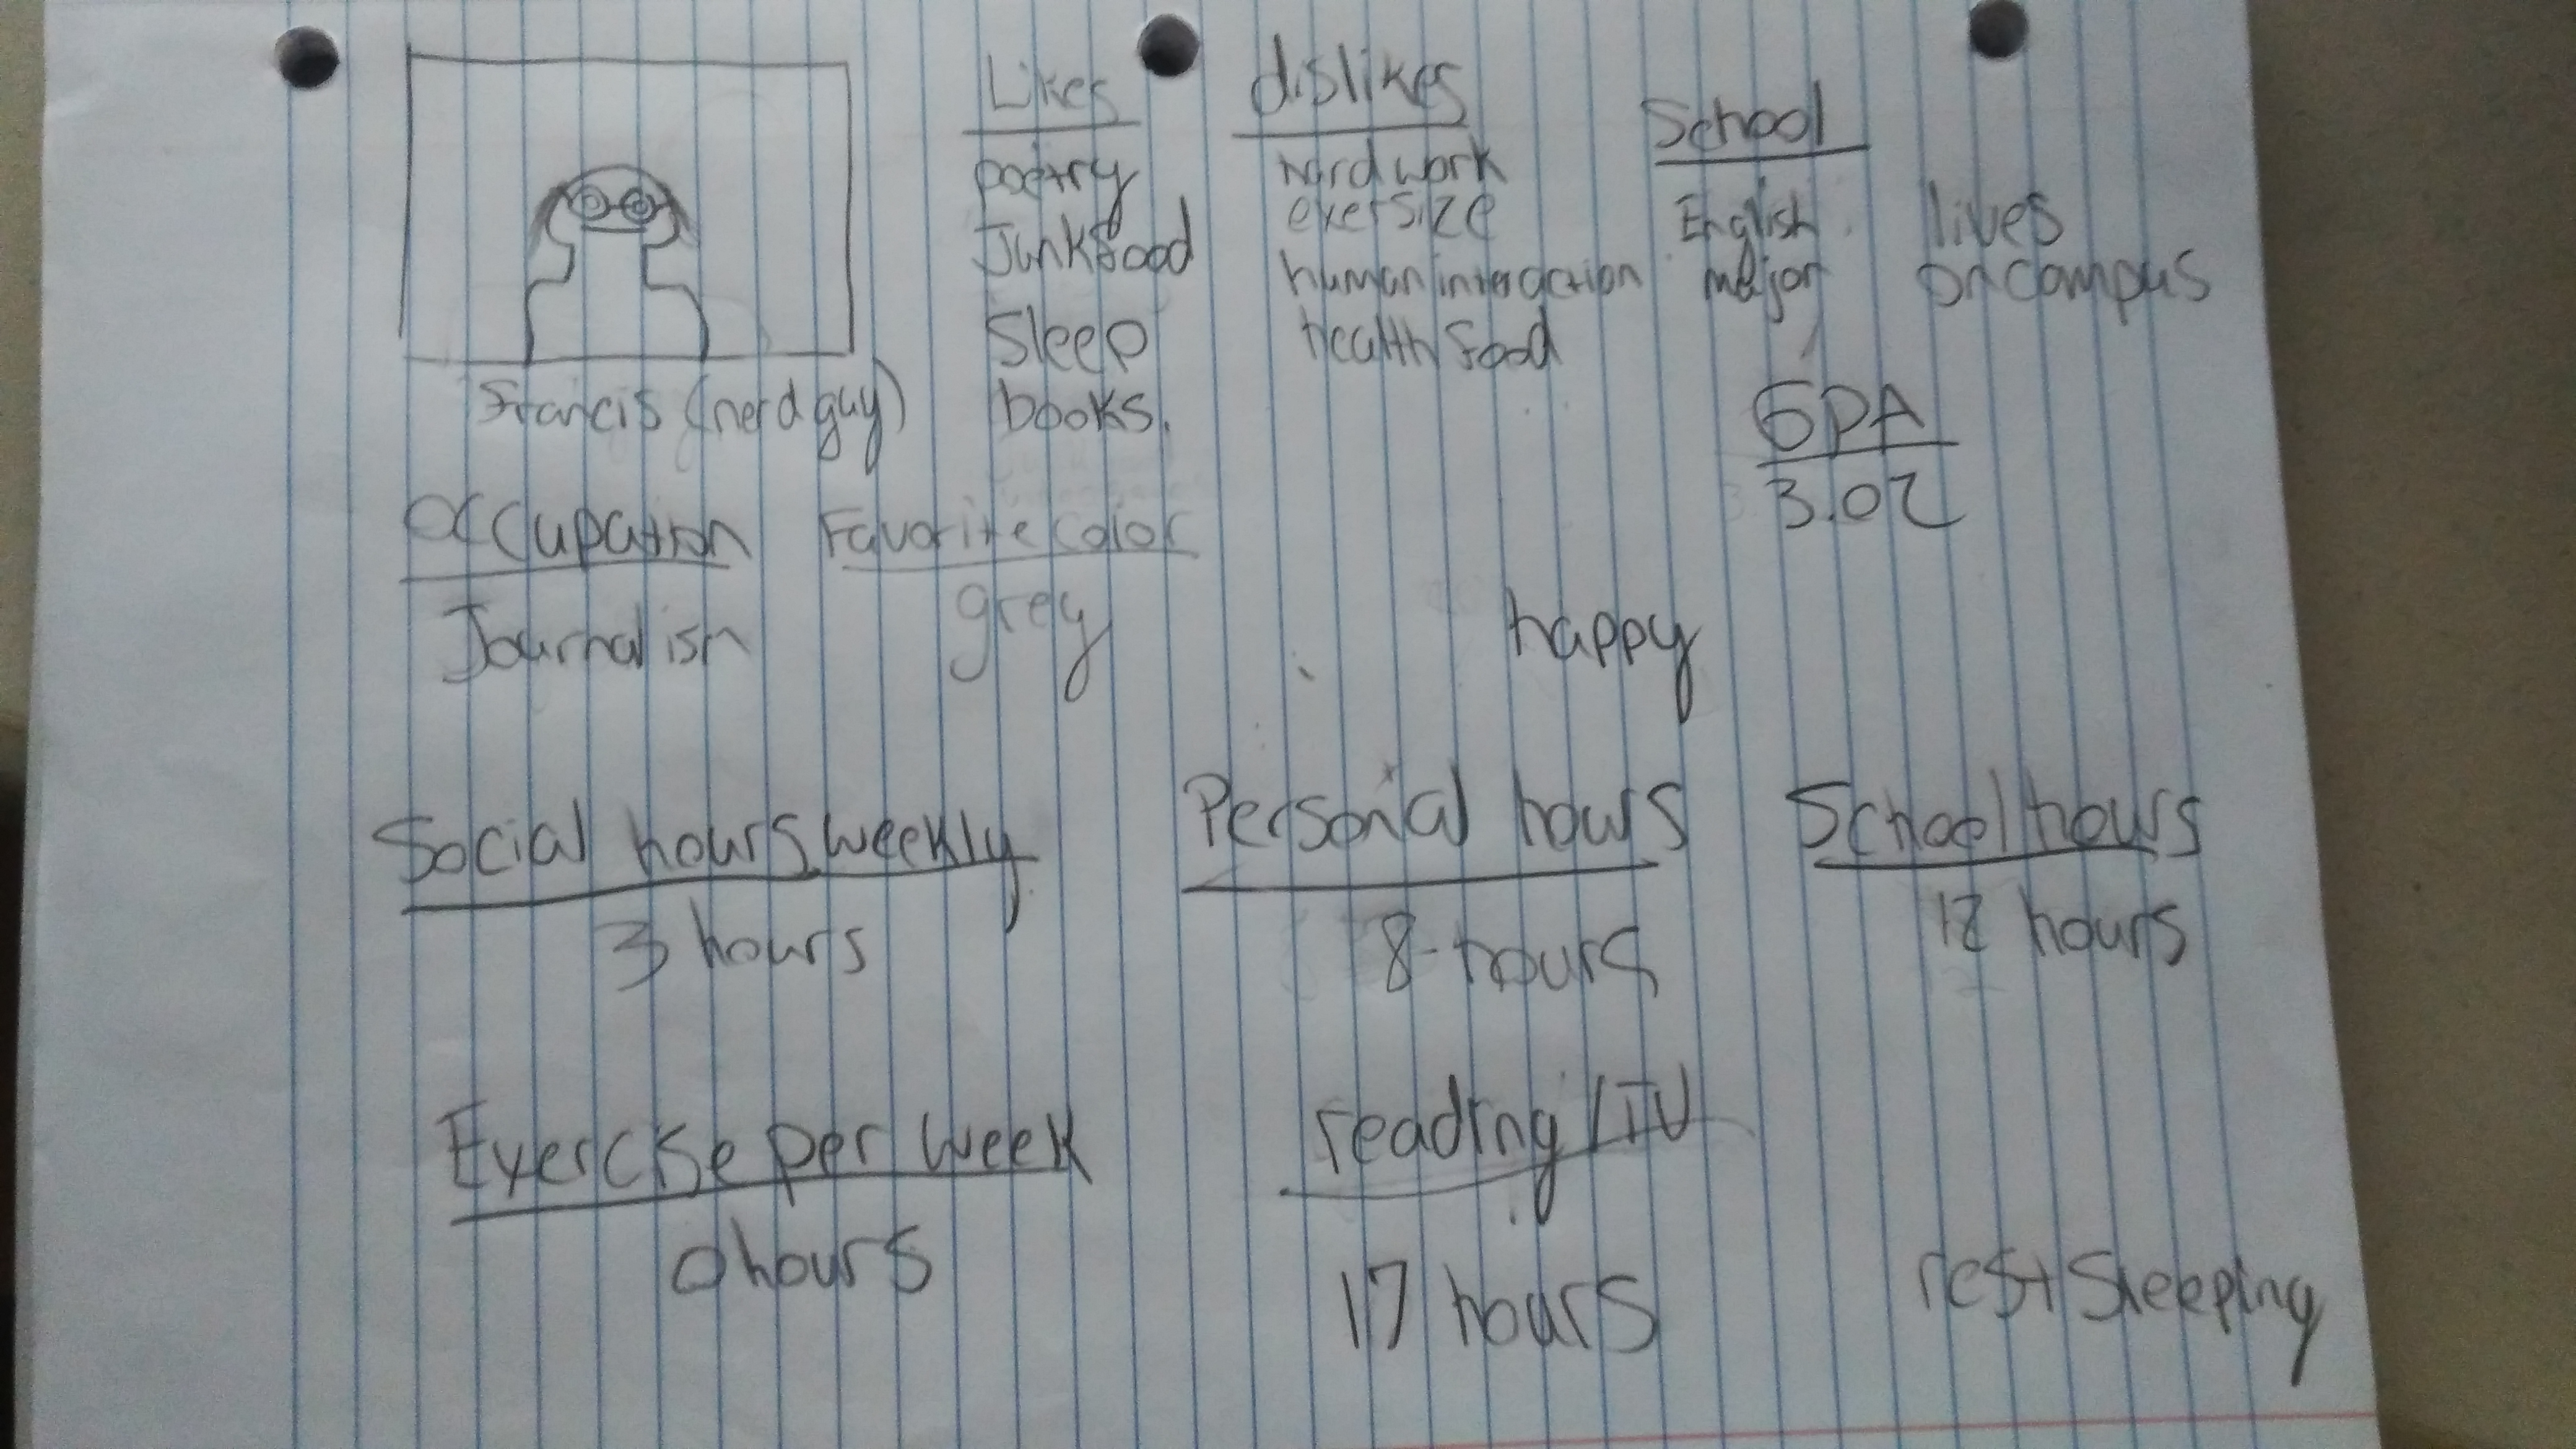 Likes
poetry
Junkfood
Sleep
books.
dislikes
hard work
exersize
human interaction
health food
School
English
major
lives
on campus
Francis (nerd guy)
occupation
Journalism
Favorite color
grey
happy
GPA
3.02
Social hours weekly
3 hours
Personal hours
8 hours
School hours
12 hours
Exercise per week
0 hours
reading/TV
17 hours
rest sleeping